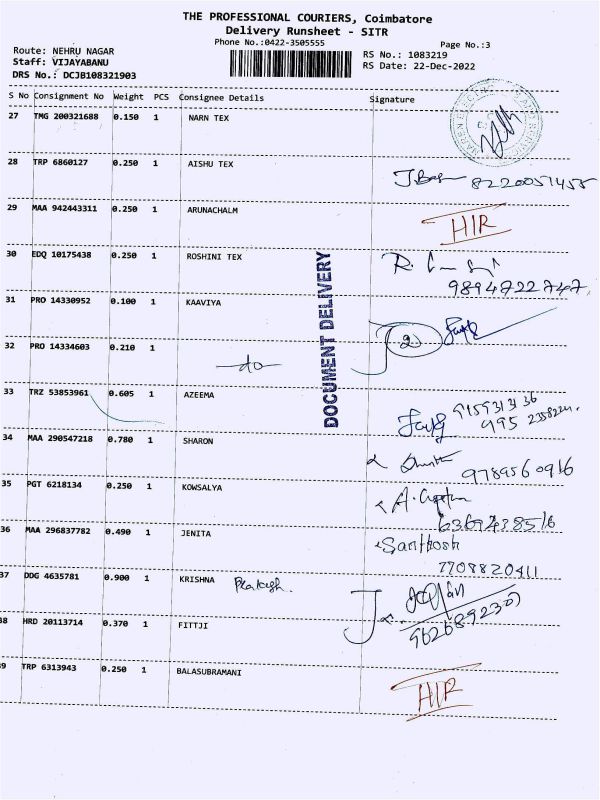 THE PROFESSIONAL COURIERS, Coimbatore
Delivery Runsheet - SITR
Phone No.:0422-3505555
Page No.:3
Route: NEHRU NAGAR
Staff: VIJAYABANU
DRS No.: DCJB108321903
RS No.: 1083219
RS Date: 22-Dec-2022
S No Consignment No Weight PCS Consignee Details Signature
27 TMG 200321688 0.150 1 NARN TEX
28 TRP 6860127 0.250 1 AISHU TEX
8220051455
29 MAA 942443311 0.250 1 ARUNACHALM
HIR
30 EDQ 10175438 0.250 1 ROSHINI TEX
9894722747
31 PRO 14330952 0.100 1 KAAVIYA
2
32 PRO 14334603 0.210 1
to
33 TRZ 53853961 0.605 1 AZEEMA
34 MAA 290547218 0.780 1 SHARON
9789560916
35 PGT 6218134 0.250 1 KOWSALYA
6369438516
36 MAA 296837782 0.490 1 JENITA
Santhosh
7708820411
37 DDG 4635781 0.900 1 KRISHNA
38 HRD 20113714 0.370 1 FITTJI
39 TRP 6313943 0.250 1 BALASUBRAMANI
HIR
DOCUMENT DELIVERY